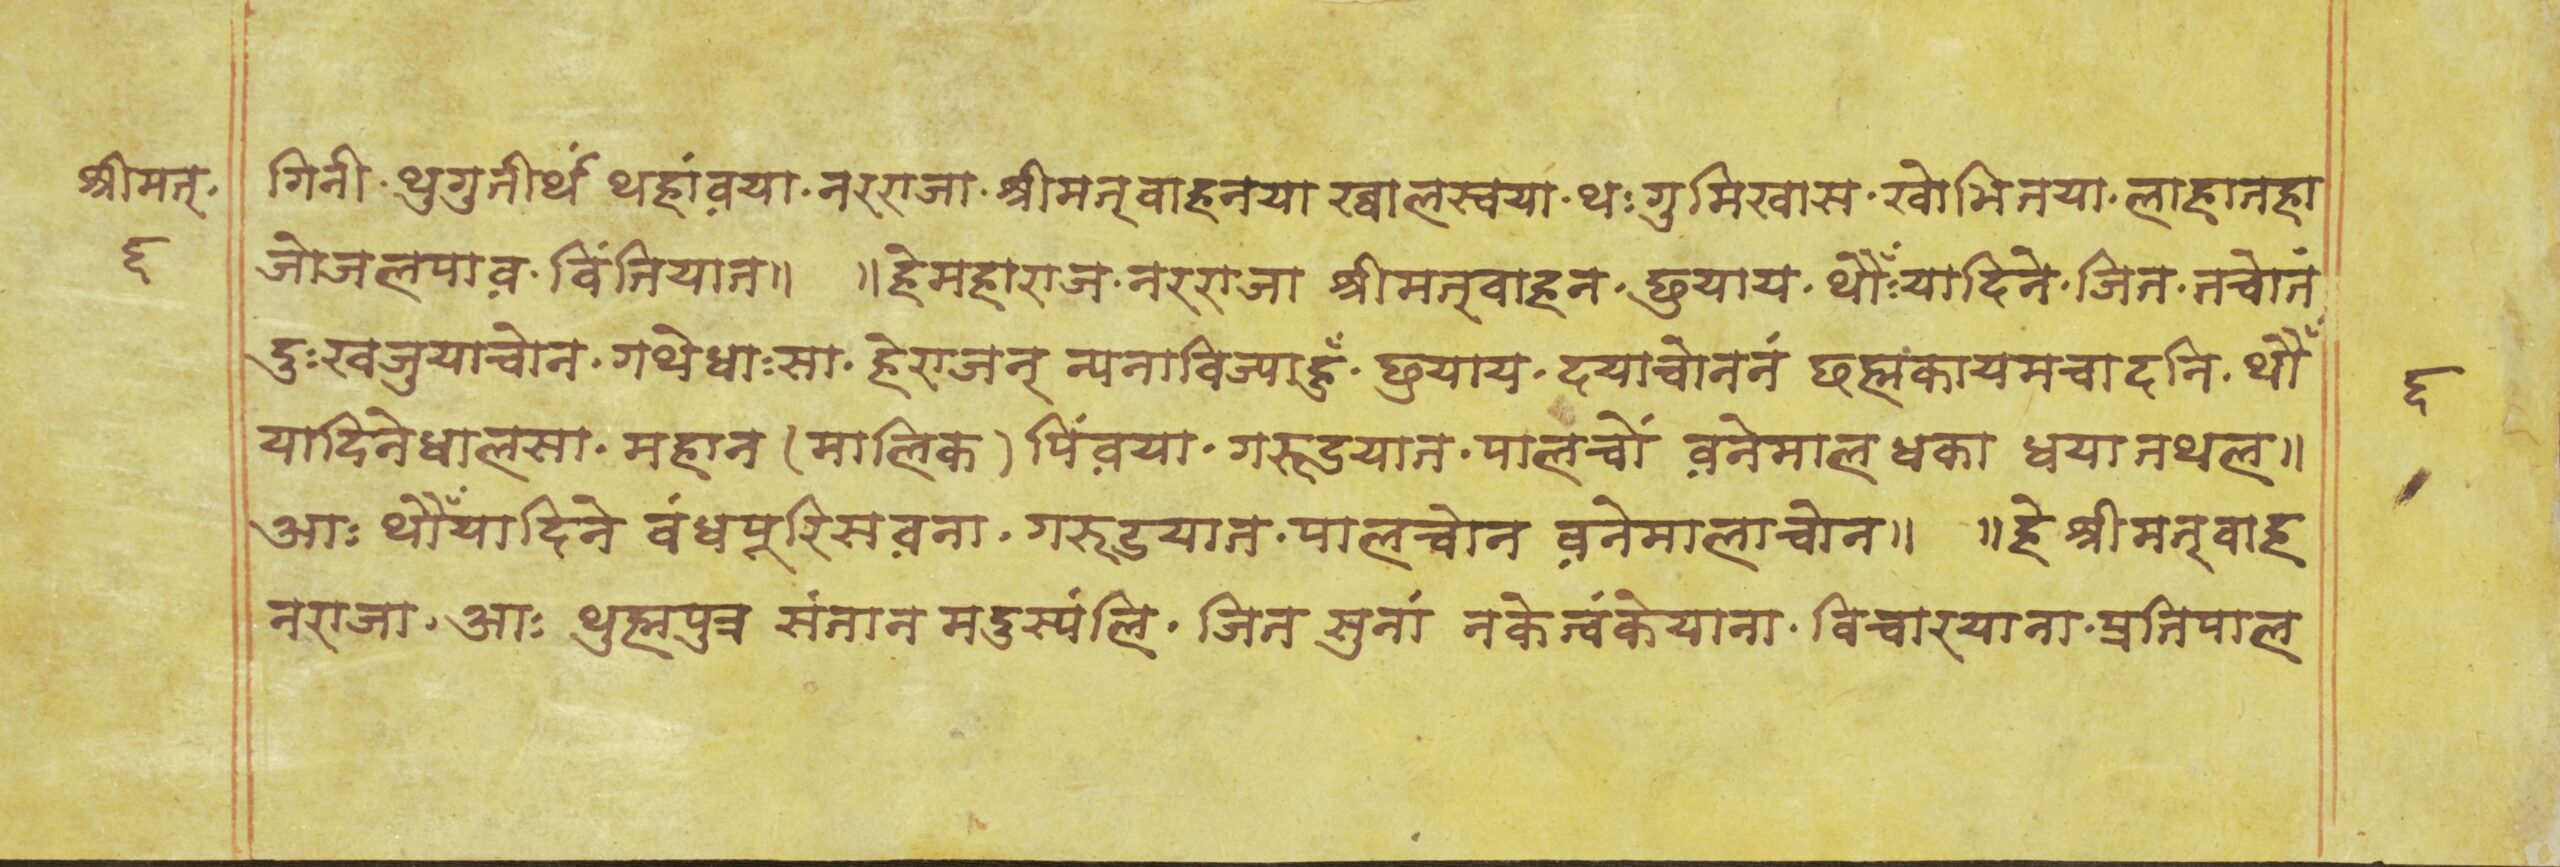 श्रीमत्·
६
गिनी·थुगुतीर्थं थहांव़या·नरराजा·श्रीमत्वाहनया ख्वालस्वया·थःगुमिखास·खोभितया·लाहातह्ना
जोजलपाव़·विंतियात॥ ॥हेमहाराज·नरराजा श्रीमत्वाहन·छुयाय·थौँःयादिने·जित·नच्चोनं
दुःखजुयाच्चोन·गथेधाःसा·हेराजन् न्यनाविज्याहुँ·छुयाय·दयाच्चोननं छह्मकायमचादनि·थौँ
यादिनेधालसा·महान(मालिक)पिंव़या·गरूडयात·पालच्चों व़नेमालधका धयातथल॥
आः थौँयादिने वंधपूरिसव़ना·गरूडयात·पालच्चोन व़नेमालाच्चोन॥ ॥हे श्रीमत्वाह
नराजा·आः थुह्मपुत्र संतान मदुस्यंलि·जित सुनां नकेत्वंकेयाना·विचारयाना·प्रतिपाल
६